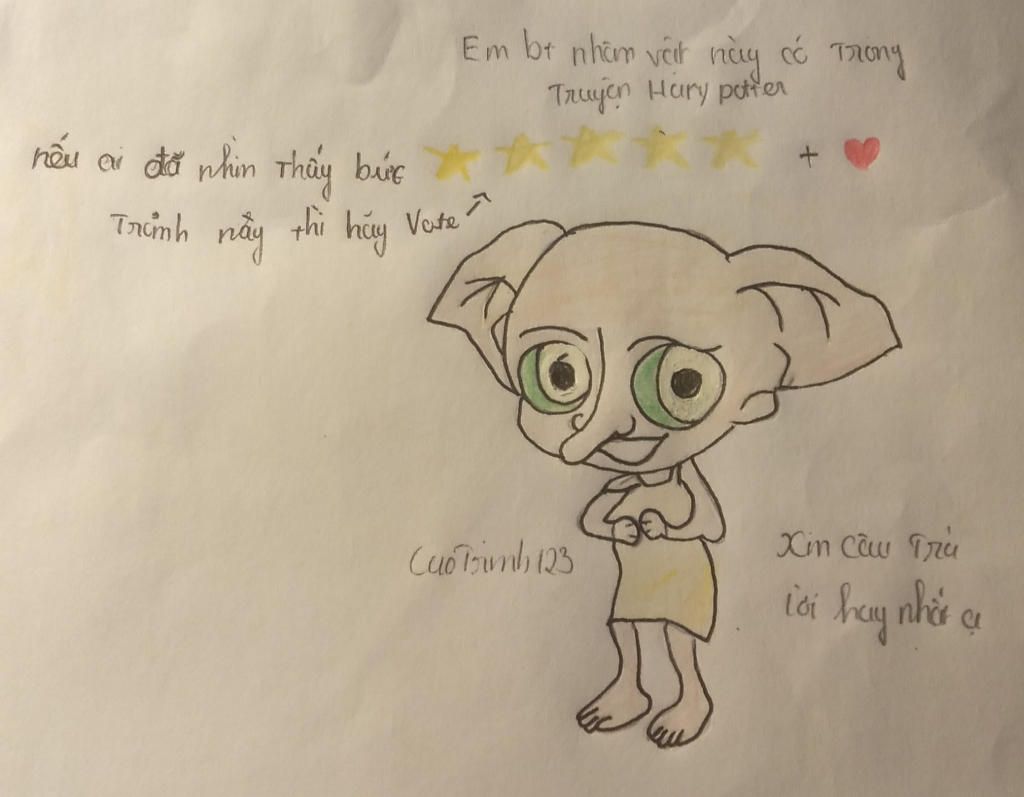 Em bt nhân vật này có Trong
Truyện Harry potter
nếu ai đã nhìn Thấy bức
Tranh nầy thì hãy Vote
+
CuoTrinh123
Xin câu Trả
lời hay nhất ạ